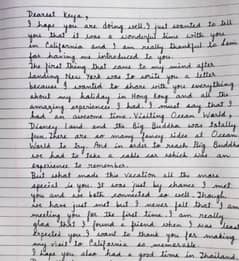 Dearest Keya,
I hope you are doing well. I just wanted to tell
you that it was a wonderful time with you
in California and I am really thankful to Sam
for having me introduced to you.
The first thing that came to my mind after
landing New York was to write you a letter
because I wanted to share with you everything
about my holiday in Hong Kong and all the
amazing experiences I had. I must say that I
had an awesome time. Visiting Ocean World,
Disney Land and the Big Buddha was totally
fun. There are so many funny rides at Ocean
World to try. And in order to reach Big Buddha
we had to take a cable car which was an
experience to remember.
But what made this vacation all the more
special is you. It was just by chance I met
you and we both connected so well. Though
we have just met but I never felt that I am
meeting you for the first time. I am really
glad that I found a friend when I was least
expected you. I want to thank you for making
my visit to California so memorable.
I hope you also had a good time in Thailand.